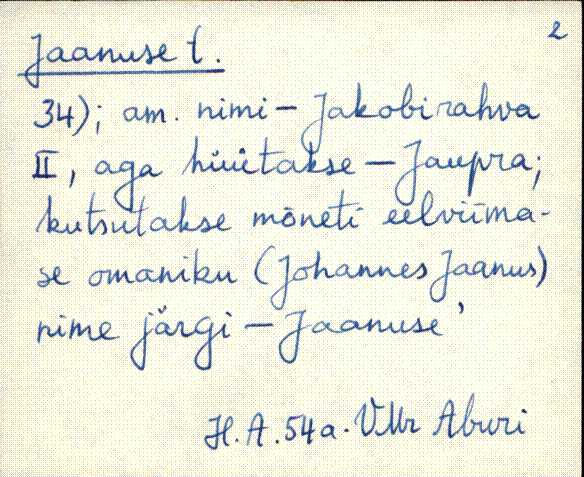 2
Jaanuse t.
34); am. nimi – Jakobirahva
II, aga hüütakse – Jaupra;
kutsutakse mõneti eelviima-
se omaniku (Johannes Jaanus)
nime järgi – Jaanuse'
H. A. 54a. VMr Aburi